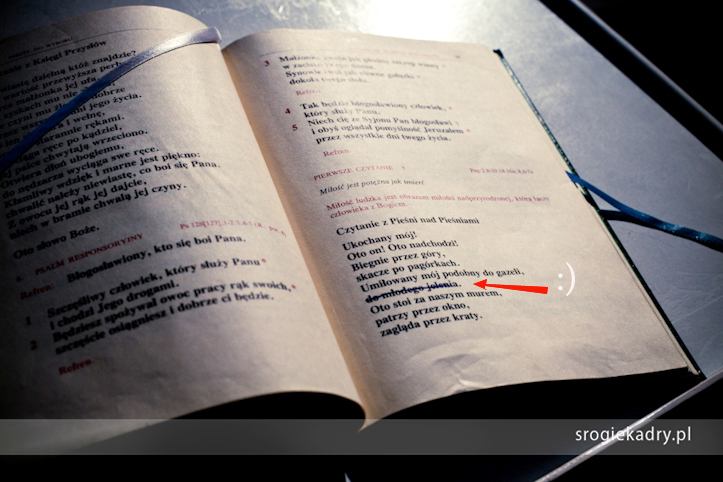 nie z Księgi Przysłów
dzielną któż znajdzie?
wartość przewyższa perły
małżonka jej ufa
nie czyni mu źle, ale dobrze
dni jego życia.
wełnę,
starannie rękami.
ręce po kądziel,
jej palce chwytają wrzeciono.
Otwiera dłoń ubogiemu,
do nędzarza wyciąga swe ręce.
Kłamliwy wdzięk i marne jest piękno:
chwalić należy niewiastę, co boi się Pana.
Z owocu jej rąk jej dajcie,
niech w bramie chwalą jej czyny.
Oto słowo Boże.
6. PSALM RESPONSORYJNY
Ps 128[127], 1-2. 3. 4-5 (R.: por. 4)
Refren: Błogosławiony, kto się boi Pana.
1 Szczęśliwy człowiek, który służy Panu *
i chodzi Jego drogami.
2 Będziesz spożywał owoc pracy rąk swoich, *
szczęście osiągniesz i dobrze ci będzie.
Refren.
3 Małżonka twoja jak płodny szczep winny *
w zaciszu twego domu.
Synowie twoi jak oliwne gałązki *
dokoła twego stołu.
Refren.
4 Tak będzie błogosławiony człowiek, *
który służy Panu.
5 Niech cię ze Syjonu Pan błogosławi *
i obyś oglądał pomyślność Jeruzalem *
przez wszystkie dni twego życia.
Refren.
PIERWSZE CZYTANIE
Miłość jest potężna jak śmierć
Miłość ludzka jest obrazem miłości nadprzyrodzonej, która łączy
człowieka z Bogiem.
Czytanie z Pieśni nad Pieśniami
Ukochany mój!
Oto on! Oto nadchodzi!
Biegnie przez góry,
skacze po pagórkach.
Umiłowany mój podobny do gazeli,
do młodego jelenia.
Oto stoi za naszym murem,
patrzy przez okno,
zagląda przez kraty.
:)
srogiekadry.pl